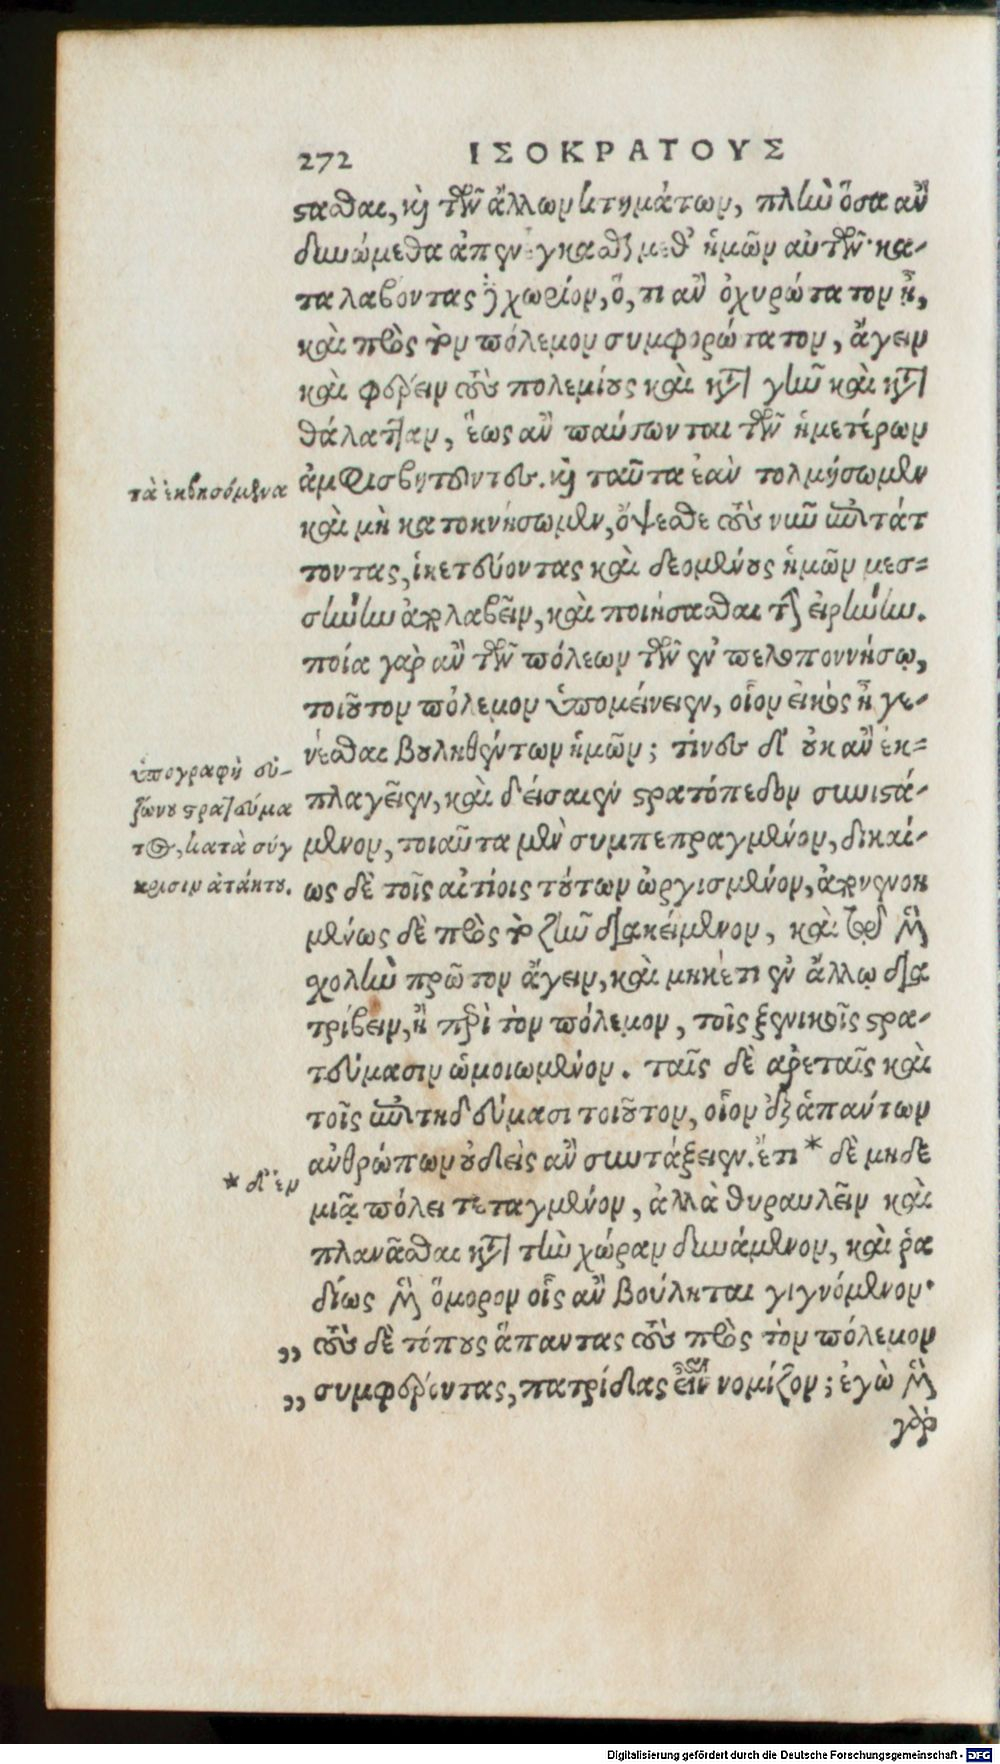 272 ΙΣΟΚΡΑΤΟΥΣ
σταθαι, καὶ τῶν ἄλλων κτημάτων, πλὴν ὅσα ἂν
δυνώμεθα ἀπενεγκᾶσθαι μεθ' ἡμῶν αὐτῶν· κα-
ταλαβόντας δὲ χωρίον, ὅ, τι ἂν ὀχυρώτατον ᾖ,
καὶ πρὸς τὸν πόλεμον συμφορώτατον, ἄγειν
καὶ φέρειν τοὺς πολεμίους καὶ κατὰ γῆν καὶ κατὰ
θάλατταν, ἕως ἂν παύσωνται τῶν ἡμετέρων
τὰ ἐκβησόμενα
ἀμφισβητοῦντες. καὶ ταῦτα ἐὰν τολμήσωμεν
καὶ μὴ κατοκνήσωμεν, ὄψεσθε τοὺς νῦν ἐπιτάτ
τοντας, ἱκετεύοντας καὶ δεομένους ἡμῶν μεσ-
σήνην ἀπολαβεῖν, καὶ ποιήσασθαι τὴν εἰρήνην.
ποία γὰρ ἂν τῶν πόλεων τῶν ἐν πελοποννήσῳ,
τοιοῦτον πόλεμον ὑπομείνειεν, οἷον εἰκός ἦ γε-
νέσθαι βουληθέντων ἡμῶν; τίνες δ' οὐκ ἂν ἐκ-
ὑπογραφὴ εὐ-
ζώνου στρατεύμα
τος, κατὰ σύγ
κρισιν ἀτάκτου.
πλαγεῖεν, καὶ δείσαιεν στρατόπεδον συνιστά-
μενον, τοιαῦτα μὲν συμπεπραγμένον, δικαί-
ως δὲ τοῖς αἰτίοις τούτων ὠργισμένον, ἀπονενοη
μένως δὲ πρὸς τὸ ζῆν διακείμενον, καὶ τῷ μὲν
σχολὴν πρῶτον ἄγειν, καὶ μηκέτι ἐν ἄλλῳ δια
τρίβειν, ἢ περὶ τὸν πόλεμον, τοῖς ξενικοῖς στρα-
τεύμασιν ὡμοιωμένον. ταῖς δὲ ἀρεταῖς καὶ
τοῖς ἐπιτηδεύμασι τοιοῦτον, οἷον ἐξ ἁπάντων
ἀνθρώπων οὐδεὶς ἂν συντάξειεν. ἔτι * δὲ μηδε
* δ' ἐν
μιᾷ πόλει τεταγμένον, ἀλλὰ θυραυλεῖν καὶ
πλανᾶσθαι κατὰ τὴν χώραν δυνάμενον, καὶ ῥα
δίως μὲν ὅμορον οἷς ἂν βούληται γιγνόμενον·
,, τοὺς δὲ τόπους ἅπαντας τοὺς πρὸς τὸν πόλεμον
,, συμφέροντας, πατρίδας εἶναι νομίζον; ἐγὼ μὲν
γὰρ